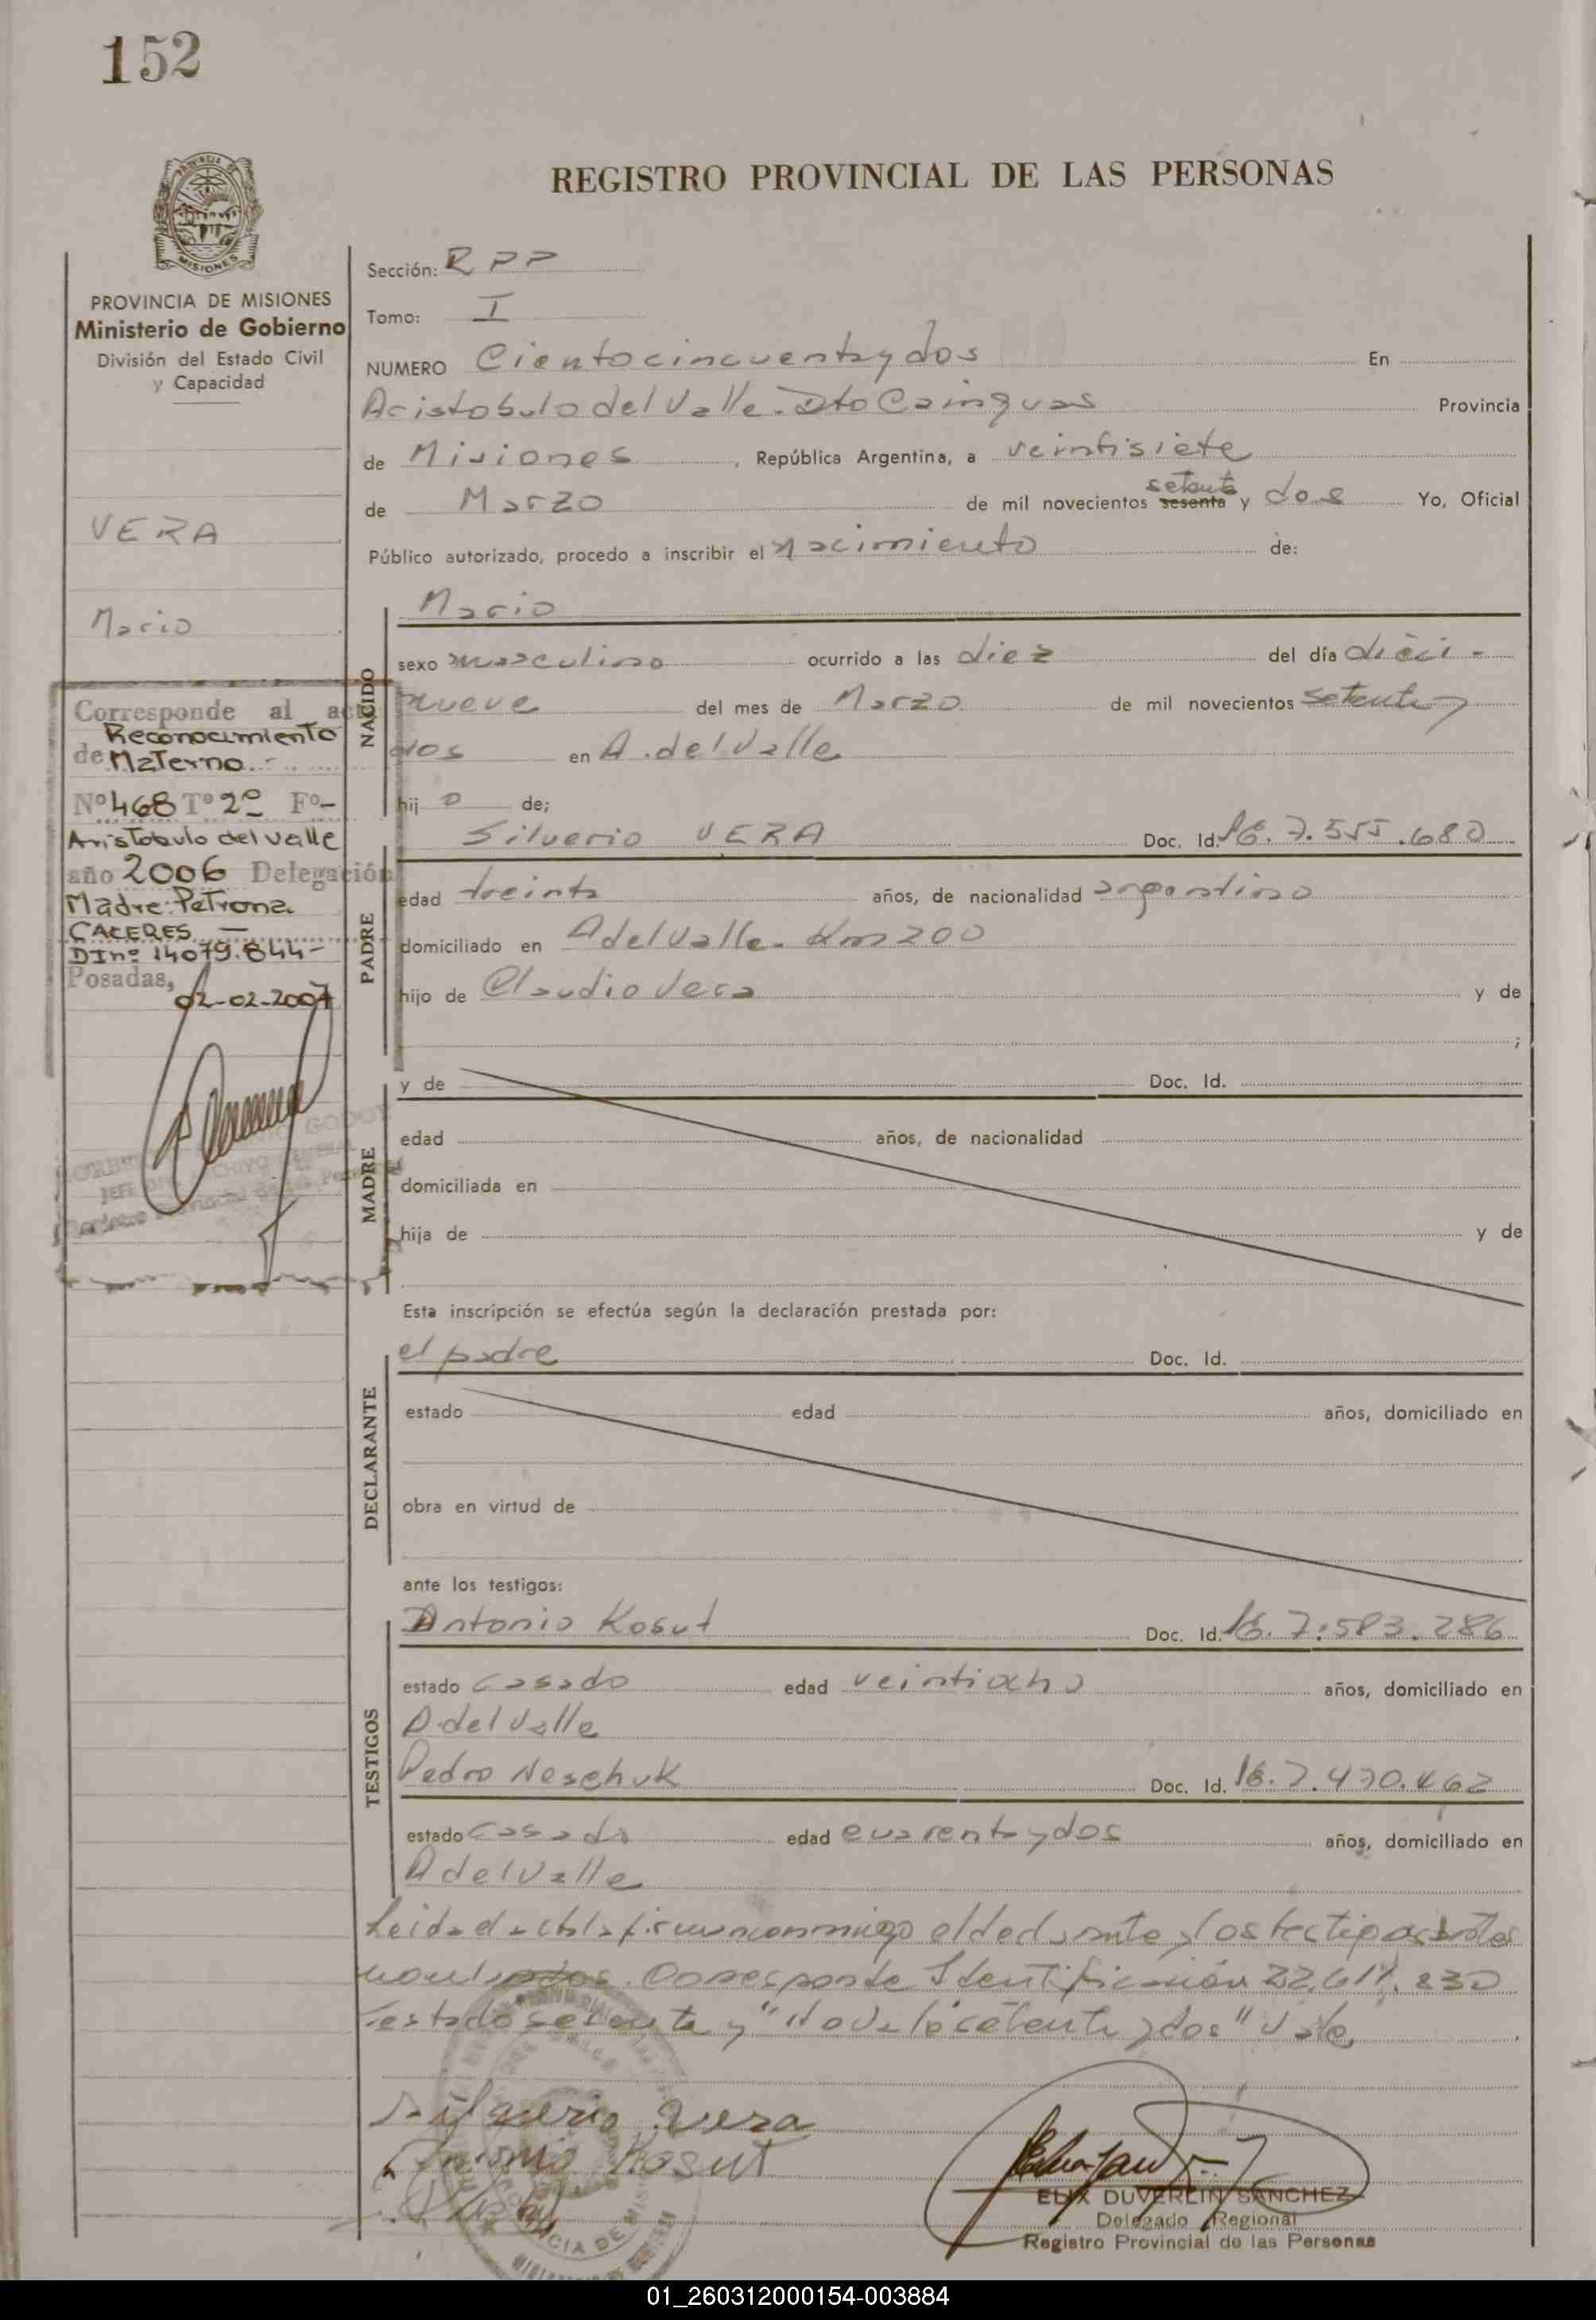 152
REGISTRO PROVINCIAL DE LAS PERSONAS
PROVINCIA DE MISIONES
Ministerio de Gobierno
División del Estado Civil
y Capacidad
VERA
Mario
Corresponde al acta
Reconocimiento
de Materno.-
Nº 468 Tº 2º Fº-
Aristobulo del valle
año 2006 Delegación
Madre: Petrona
CACERES -
DI nº 14079.844-
Posadas,
02-02-2007
GODOY
JEFE
Sección: R P P
Tomo: I
NUMERO Ciento cincuenta y dos En
Aristobulo del Valle. Dto Cainguas Provincia
de Misiones, República Argentina, a veintisiete
de Marzo de mil novecientos sesenta setenta y dos Yo, Oficial
Público autorizado, procedo a inscribir el nacimiento de:
NACIDO
Mario
sexo masculino ocurrido a las diez del día dieci-
nueve del mes de Marzo de mil novecientos setenta y
dos en A. del Valle
hij o de;
PADRE
Silverio VERA Doc. Id. 7.555.680
edad treinta años, de nacionalidad argentino
domiciliado en A del Valle. Km 200
hijo de Claudio Vera y de
;
MADRE
y de Doc. Id.
edad años, de nacionalidad
domiciliada en
hija de y de
Esta inscripción se efectúa según la declaración prestada por:
DECLARANTE
el padre Doc. Id.
estado edad años, domiciliado en
obra en virtud de
ante los testigos:
TESTIGOS
Antonio Kosut Doc. Id. 7.583.286
estado casado edad veintiocho años, domiciliado en
A. del Valle
Pedro Neschuk Doc. Id. 7.470.462
estado casado edad cuarenta y dos años, domiciliado en
A del Valle
Leida el acta firman conmigo el declarante y los testigos
nombrados. Corresponde Identificación 830
Testado sesenta y setenta y dos" Vale.
Silverio Vera
Antonio Kosut
ELIX DUVERLIN SANCHEZ
Delegado Regional
Registro Provincial de las Personas
01_260312000154-003884